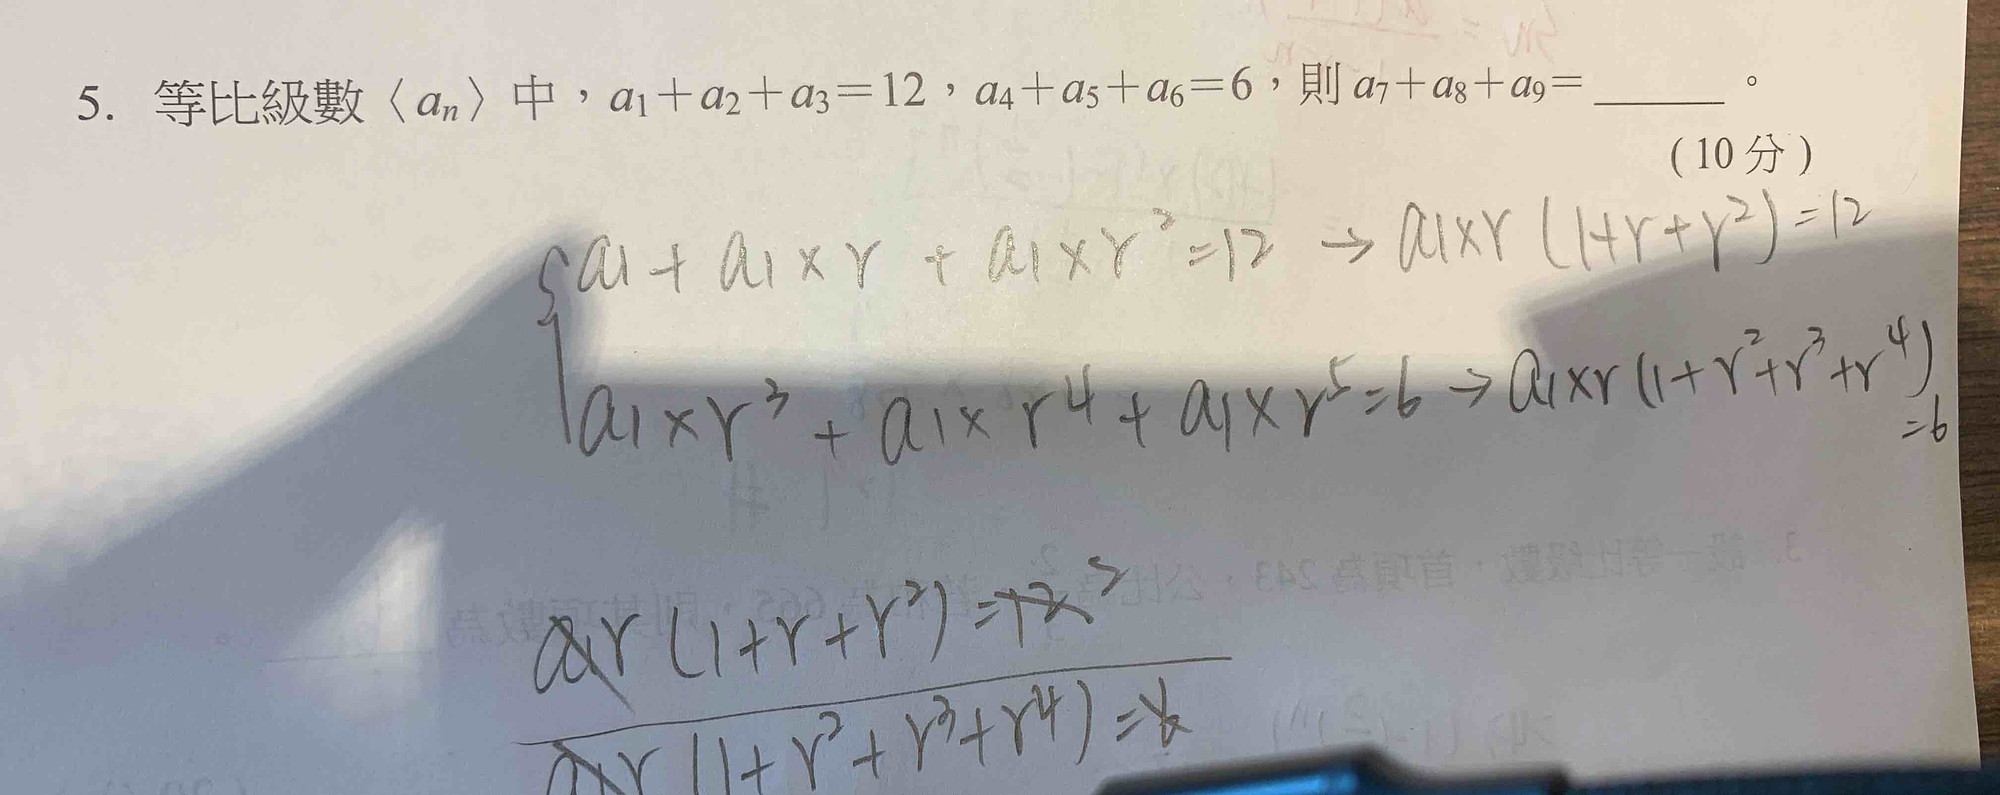 5. 等比級數〈aₙ〉中，a₁＋a₂＋a₃＝12，a₄＋a₅＋a₆＝6，則 a₇＋a₈＋a₉＝______。
(10 分)
a₁ + a₁×r + a₁×r² =12 → a₁×r (1+r+r²) =12
a₁×r³ + a₁×r⁴ + a₁×r⁵ =6 → a₁×r (1+r²+r³+r⁴)
=6
a₁r (1+r+r²) =12 2
a₁r (1+r²+r³+r⁴) =6